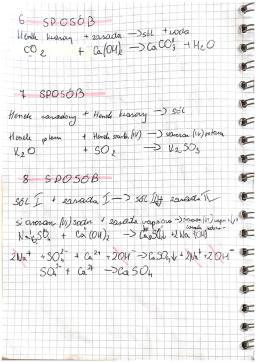 6 SPOSÓB
tlenek kwasowy + zasada → sól + woda
CO₂ + Ca(OH)₂ → CaCO₃ + H₂O
7 SPOSÓB
tlenek zasadowy + tlenek kwasowy → sól
tlenek potasu + tlenek siarki (IV) → siarczan (IV) potasu
K₂O + SO₂ → K₂SO₃
8 SPOSÓB
sól I + zasada I → sól II + zasada II
siarczan (VI) sodu + zasada wapniowa →
Na₂SO₄ + Ca(OH)₂ → CaSO₄↓ + 2NaOH
2Na⁺ + SO₄²⁻ + Ca²⁺ + 2OH⁻ → CaSO₄↓ + 2Na⁺ + 2OH⁻
SO₄²⁻ + Ca²⁺ → CaSO₄